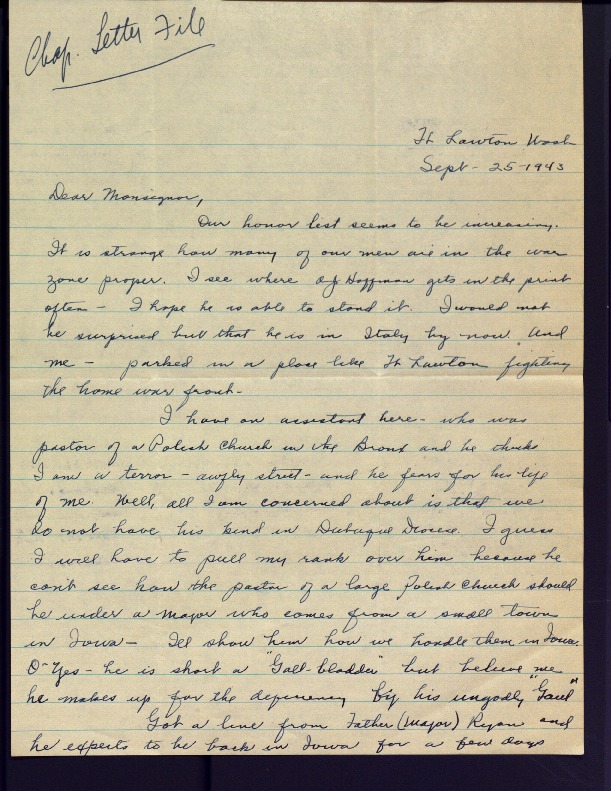 Chap. Letter File
Ft Lawton Wash
Sept - 25 - 1943
Dear Monsignor,
Our honor list seems to be increasing.
It is strange how many of our men are in the war
zone proper. I see where Hoffman gets in the print
often - I hope he is able to stand it. I would not
be surprised but that he is in Italy by now. And
me - parked in a place like Ft Lawton fighting
the home war front -
I have an assistant here - who was
pastor of a Polish Church in the Bronx and he thinks
I am a terror - awfly strict - and he fears for his life
of me. Well, all I am concerned about is that we
do not have his kind in Dubuque Diocese. I guess
I will have to pull my rank over him because he
can't see how the pastor of a large Polish Church should
be under a Major who comes from a small town
in Iowa - I'll show him how we handle them in Iowa.
O Yes - he is short a "Gall-bladder" but believe me
he makes up for the deficiency by his ungodly "Gaul"
Got a line from Father (Major) Ryan and
he expects to be back in Iowa for a few days